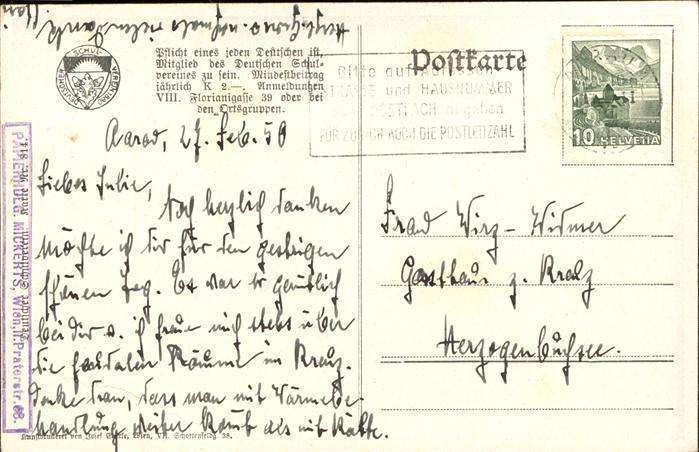 Herzl. Gruss u. nochmals vielen Dank
Pflicht eines jeden Deutschen ist,
Mitglied des Deutschen Schul-
vereines zu sein. Mindestbeitrag
jährlich K 2.—. Anmeldungen
VIII. Florianigasse 39 oder bei
den Ortsgruppen.
DEUTSCHER SCHUL-VEREIN
Aarau, 27. Feb. 50
Liebes Julie,
Noch herzlich danken
möchte ich dir für den gestrigen
schönen Tag. Es war so gemütlich
bei dir u. ich freue mich stets über
die Räume im Kreuz.
Denke dran, dass man mit Wärmebe-
handlung weiter kommt als mit Kälte.
Postkarte
Bitte auf Adressen
STRASSE und HAUSNUMMER
POSTFACH angeben
FÜR ZÜRICH AUCH DIE POSTLEITZAHL
10 HELVETIA
Frau Wirz-Widmer
Gasthaus z. Kreuz
Herzogenbuchsee.
Deutscher Schulverein Karte Nr.
Wien, II. Praterstr. 68.
Kunstdruckerei von Josef Wien, VII. Schottenfeldg. 38.